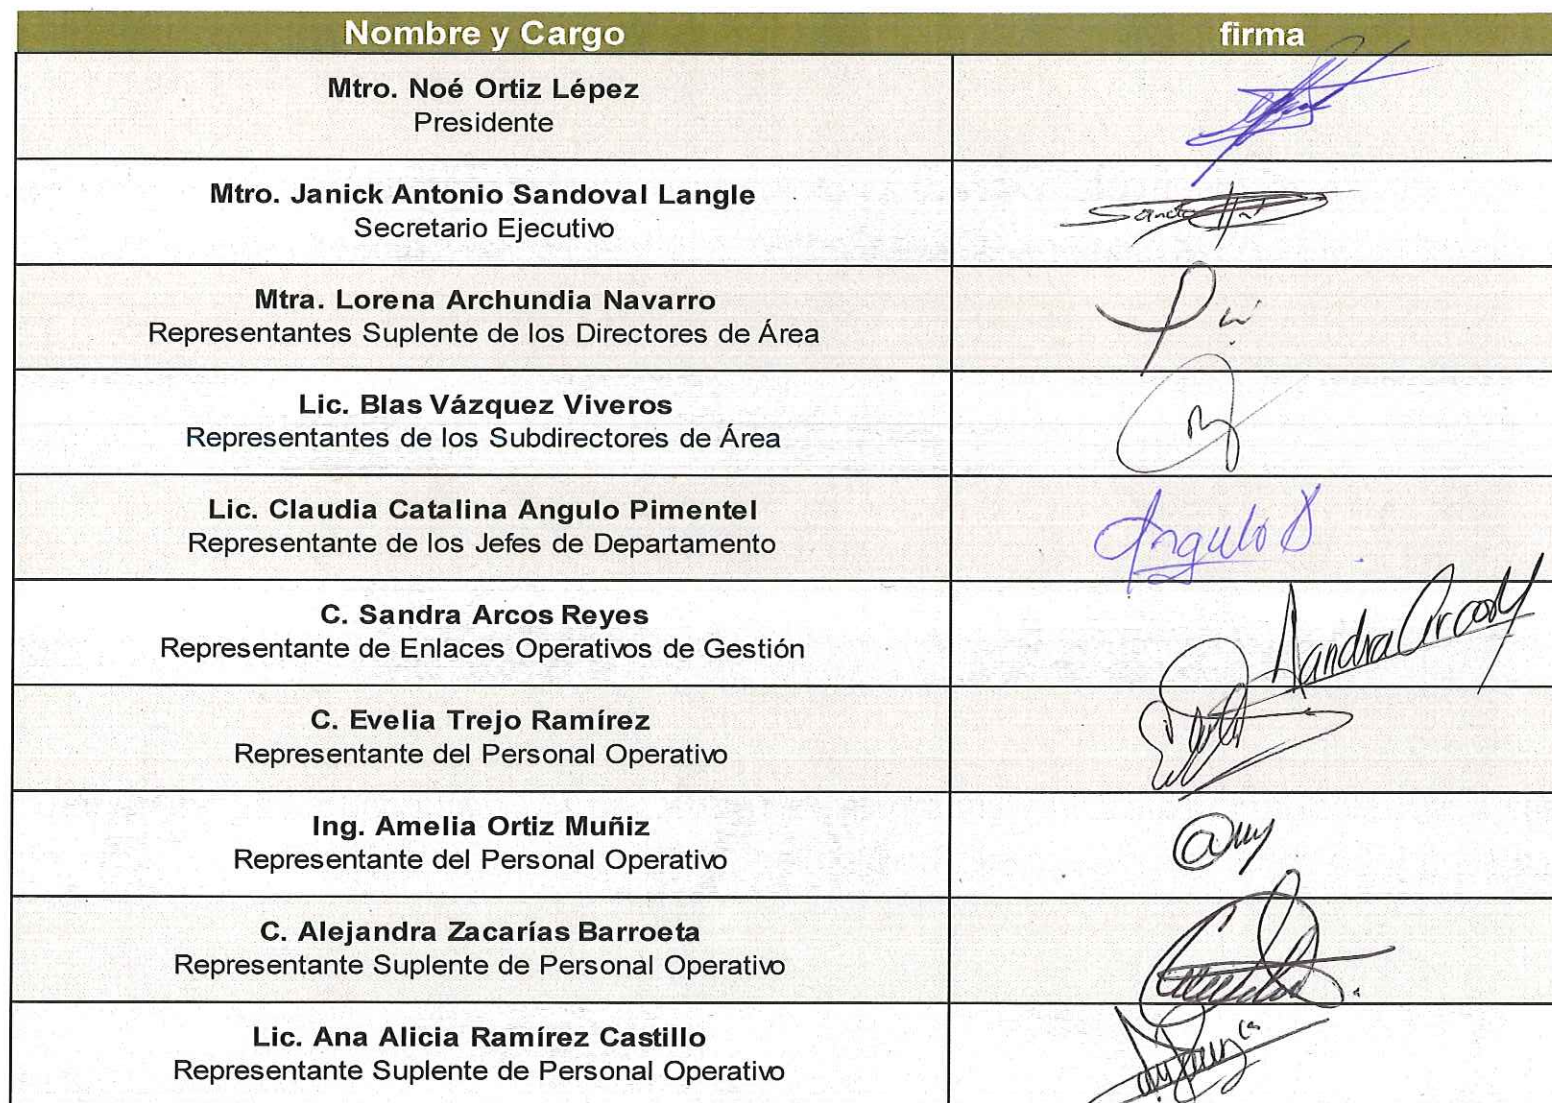 Nombre y Cargo firma
Mtro. Noé Ortiz Lépez
Presidente
Mtro. Janick Antonio Sandoval Langle
Secretario Ejecutivo
Mtra. Lorena Archundia Navarro
Representantes Suplente de los Directores de Área
Lic. Blas Vázquez Viveros
Representantes de los Subdirectores de Área
Lic. Claudia Catalina Angulo Pimentel
Representante de los Jefes de Departamento
Angulo
C. Sandra Arcos Reyes
Representante de Enlaces Operativos de Gestión
Sandra Arcos
C. Evelia Trejo Ramírez
Representante del Personal Operativo
Ing. Amelia Ortiz Muñiz
Representante del Personal Operativo
C. Alejandra Zacarías Barroeta
Representante Suplente de Personal Operativo
Lic. Ana Alicia Ramírez Castillo
Representante Suplente de Personal Operativo